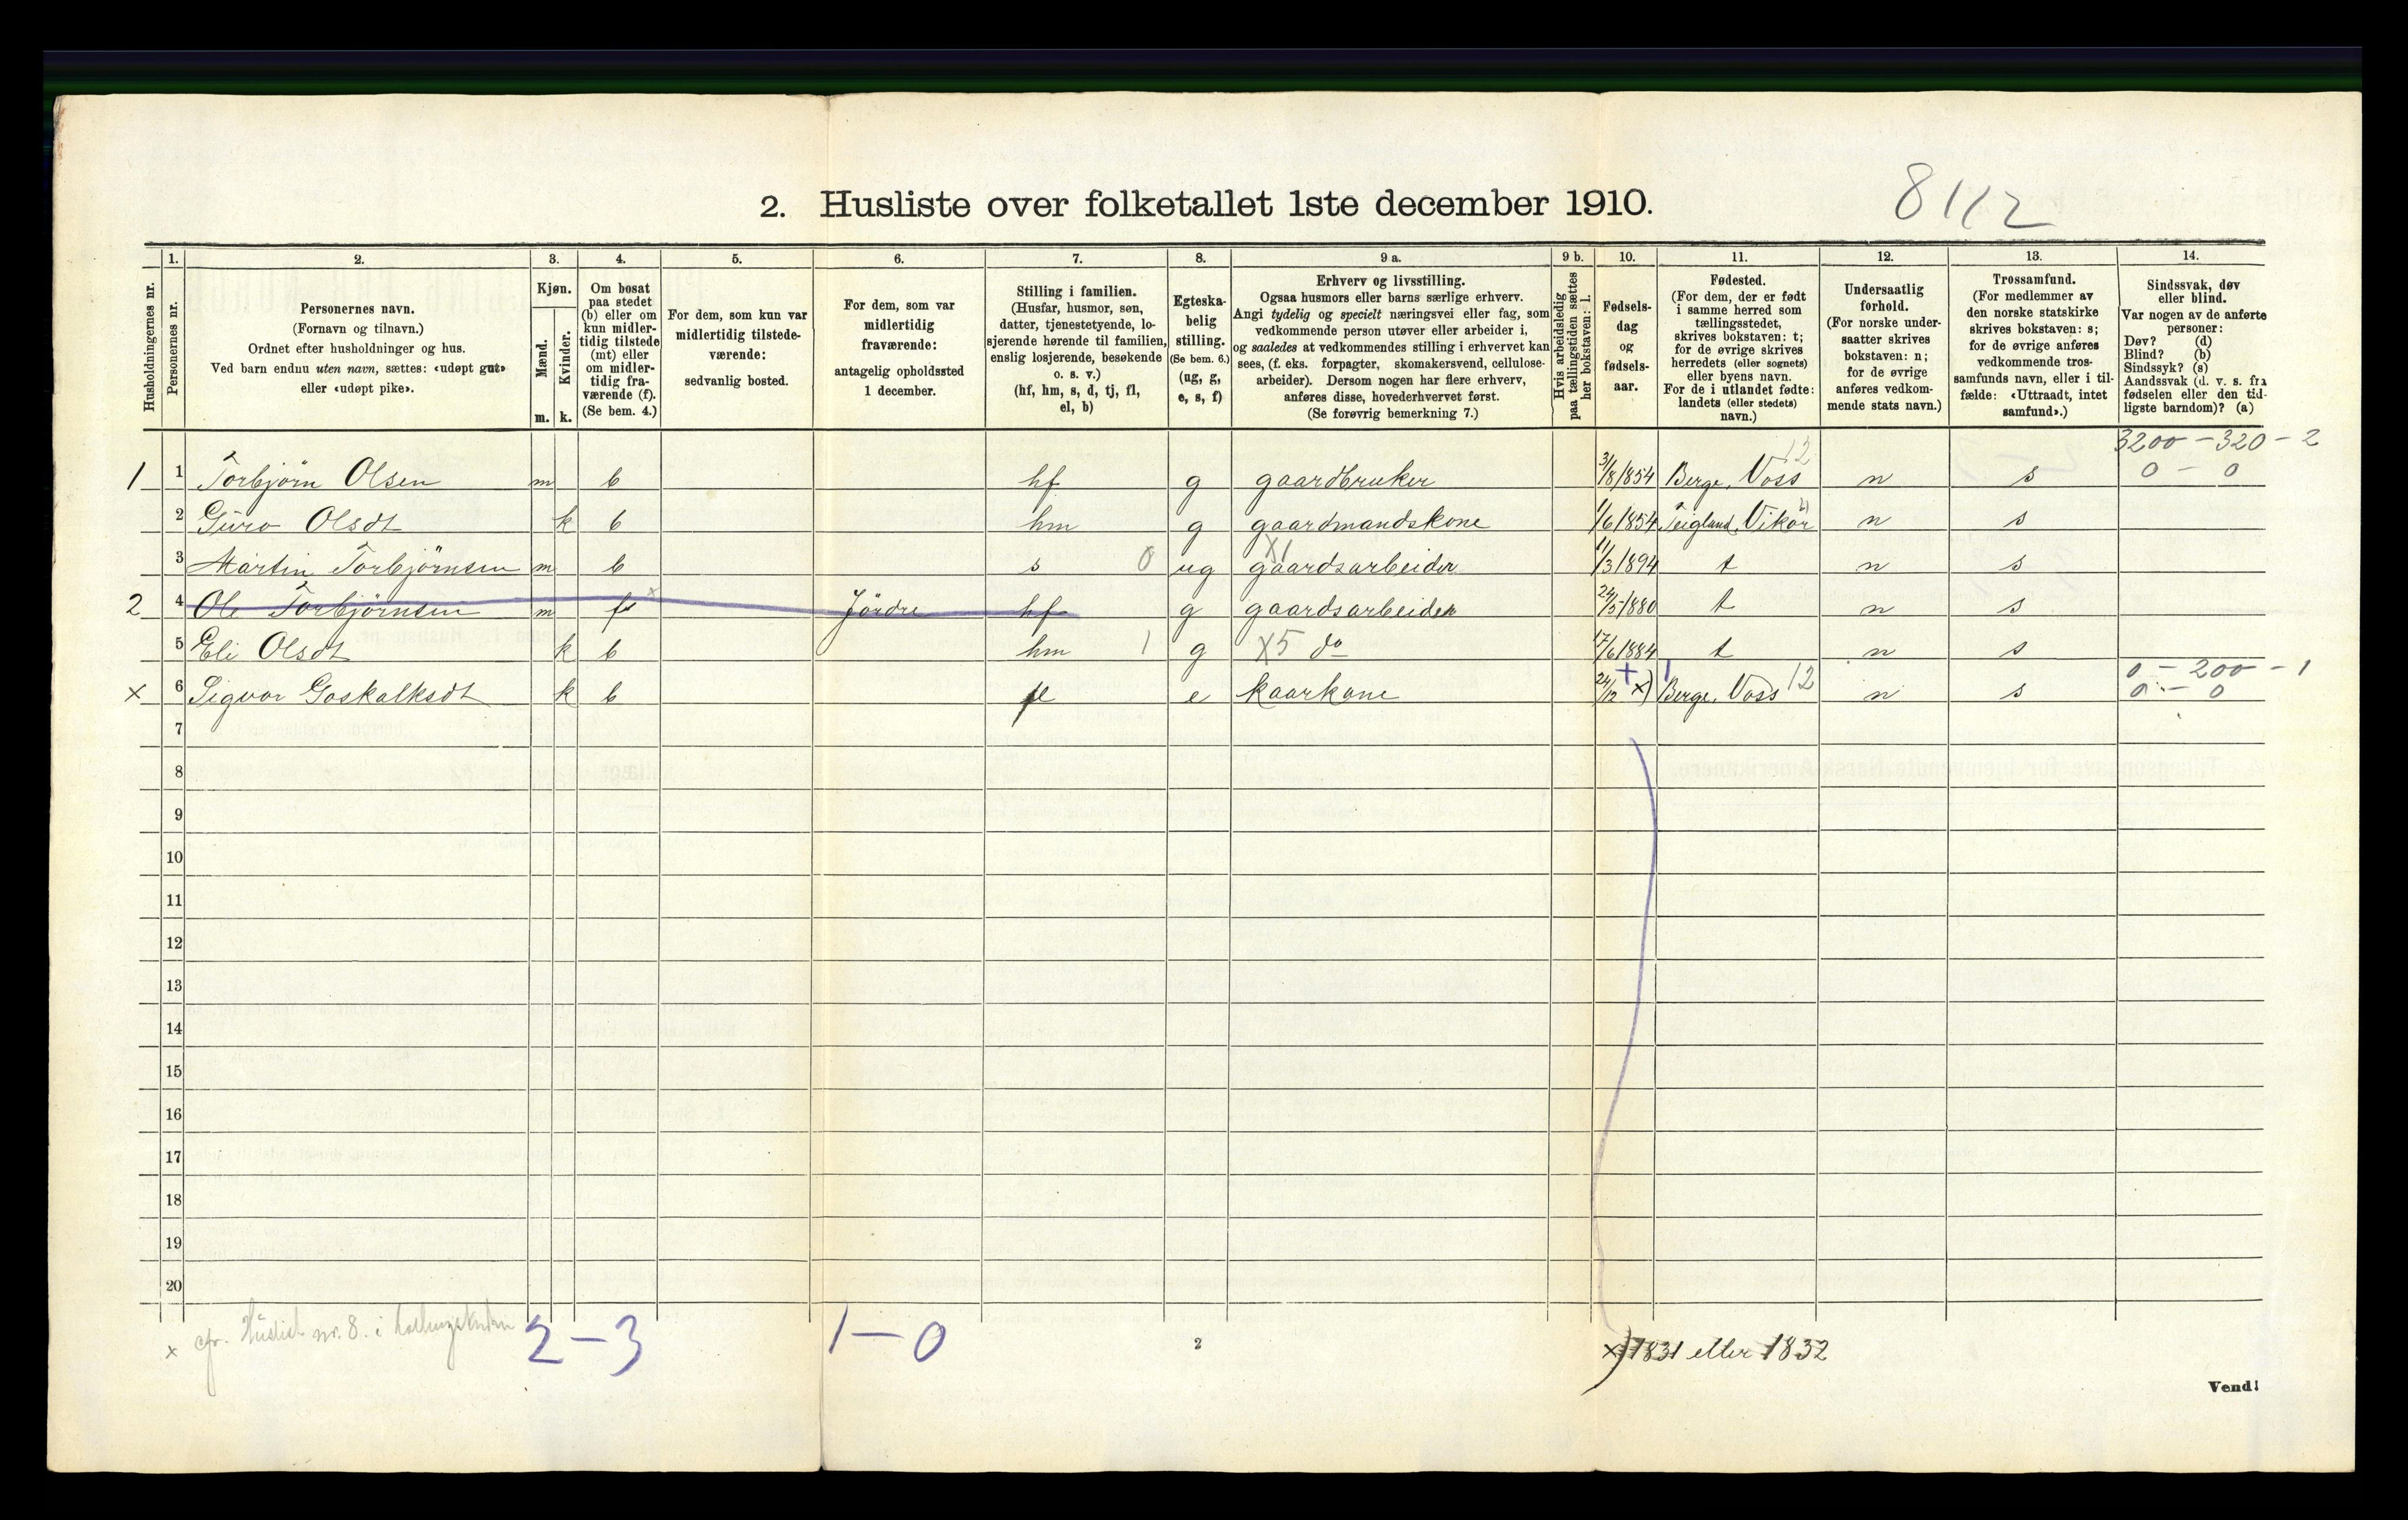 8112
2. Husliste over folketallet 1ste december 1910.
1. 2. 3. 4. 5. 6. 7. 8. 9 a. 9 b. 10. 11. 12. 13. 14.
Husholdningernes nr.
Personernes nr.
Personernes navn.
(Fornavn og tilnavn.)
Ordnet efter husholdninger og hus.
Ved barn endnu uten navn, sættes: «udøpt gut»
eller «udøpt pike».
Kjøn.
Mænd.
m.
Kvinder.
k.
Om bosat
paa stedet
(b) eller om
kun midler-
tidig tilstede
(mt) eller
om midler-
tidig fra-
værende (f).
(Se bem. 4.)
For dem, som kun var
midlertidig tilstede-
værende:
sedvanlig bosted.
For dem, som var
midlertidig
fraværende:
antagelig opholdssted
1 december.
Stilling i familien.
(Husfar, husmor, søn,
datter, tjenestetyende, lo-
sjerende hørende til familien,
enslig losjerende, besøkende
o. s. v.)
(hf, hm, s, d, tj, fl,
el, b)
Egteska-
belig
stilling.
(Se bem. 6.)
(ug, g,
e, s, f)
Erhverv og livsstilling.
Ogsaa husmors eller barns særlige erhverv.
Angi tydelig og specielt næringsvei eller fag, som
vedkommende person utøver eller arbeider i,
og saaledes at vedkommendes stilling i erhvervet kan
sees, (f. eks. forpagter, skomakersvend, cellulose-
arbeider). Dersom nogen har flere erhverv,
anføres disse, hovederhvervet først.
(Se forøvrig bemerkning 7.)
Hvis arbeidsledig
paa tællingstiden sættes
her bokstaven: l.
Fødsels-
dag
og
fødsels-
aar.
Fødested.
(For dem, der er født
i samme herred som
tællingsstedet,
skrives bokstaven: t;
for de øvrige skrives
herredets (eller sognets)
eller byens navn.
For de i utlandet fødte:
landets (eller stedets)
navn.)
Undersaatlig
forhold.
(For norske under-
saatter skrives
bokstaven: n;
for de øvrige
anføres vedkom-
mende stats navn.)
Trossamfund.
(For medlemmer av
den norske statskirke
skrives bokstaven: s;
for de øvrige anføres
vedkommende tros-
samfunds navn, eller i til-
fælde: «Uttraadt, intet
samfund».)
Sindssvak, døv
eller blind.
Var nogen av de anførte
personer:
Døv? (d)
Blind? (b)
Sindssyk? (s)
Aandssvak (d. v. s. fra
fødselen eller den tid-
ligste barndom)? (a)
12 3200 - 320 - 2
1 1 Torbjörn Olsen m b hf g gaardbruker 3/8 1854 Berge, Voss n s 0 - 0
2 Guro Olsdt k b hm g gaardmandskone 1/6 1854 Teigland, Vikör n s
3 Martin Torbjörnsen m b s 0 ug X1 gaardsarbeider 11/3 1894 t n s
2 4 Ole Torbjörnsen m f x Jördre hf g gaardsarbeider 24/5 1880 t n s
5 Eli Olsdt k b hm 1 g X5 do 17/6 1884 t n s
0 - 200 - 1
x 6 Sigvor Goskalksdt k b fl e kaarkone 24/12 x) Berge, Voss 12 n s 0 - 0
7
8
9
10
11
12
13
14
15
16
17
18
19
20
x cfr. Huslist nr. 8. i
2 - 3 1 - 0
2
x) 1831 eller 1832
Vend!